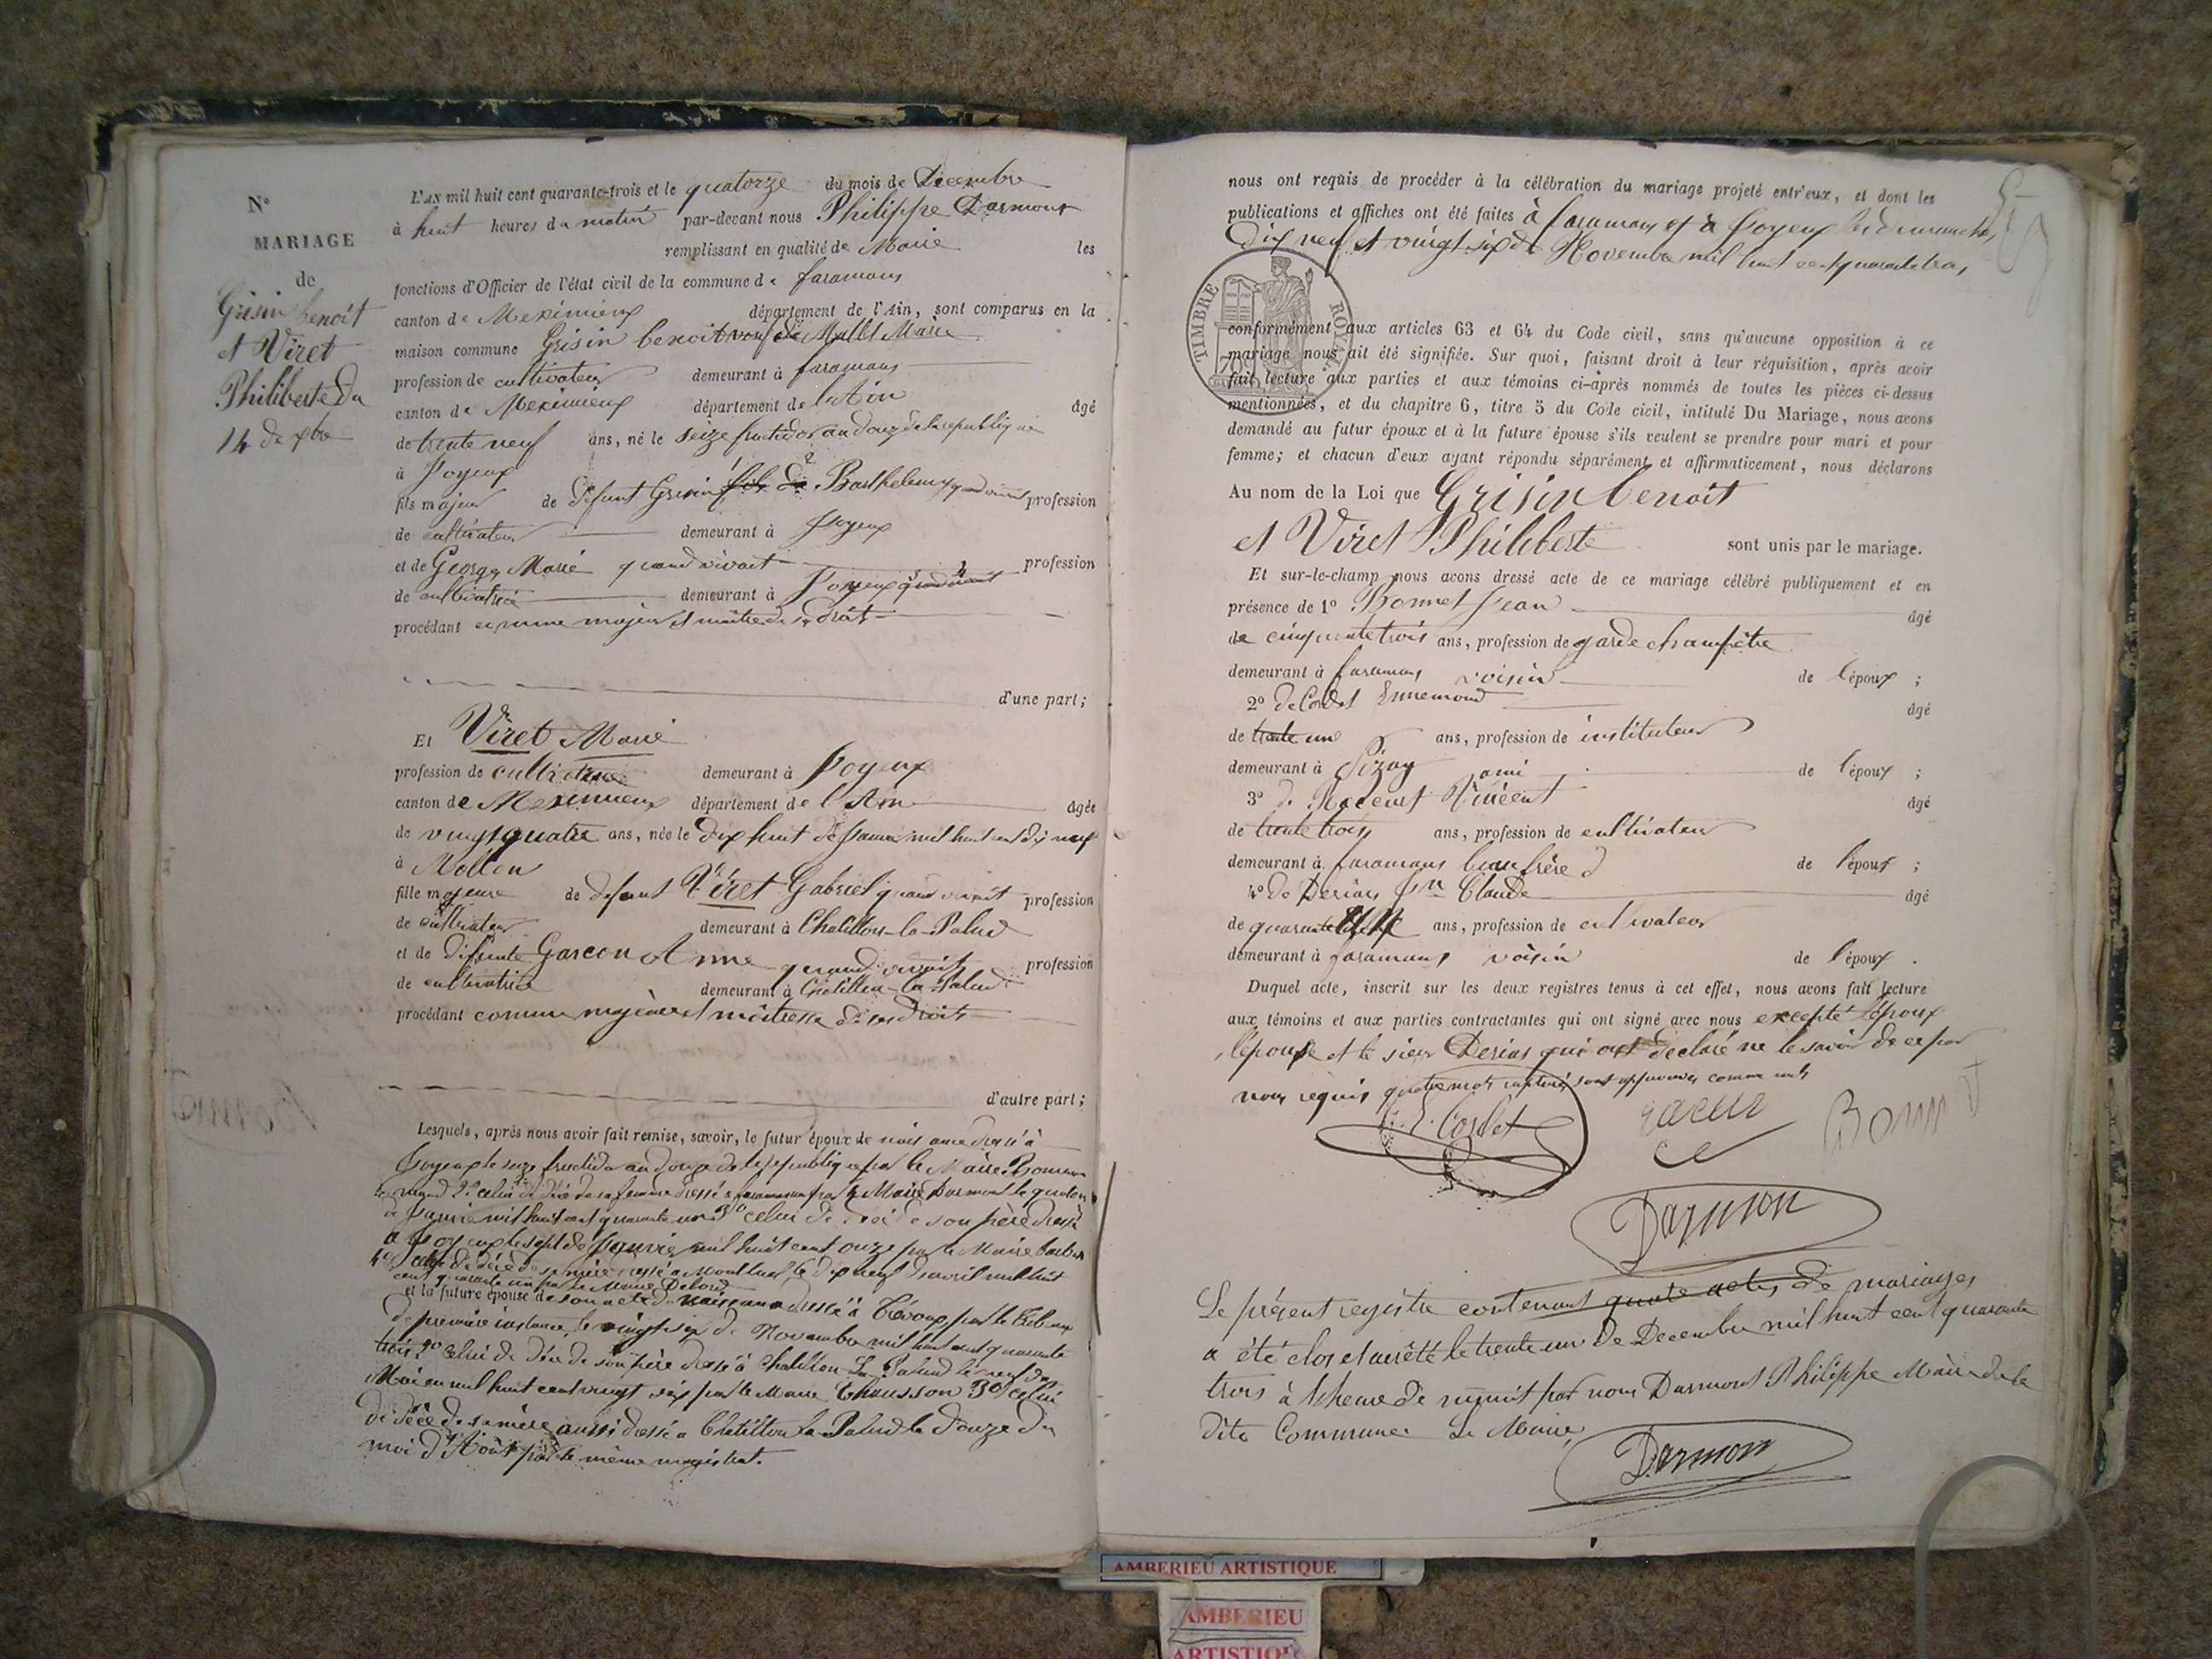 N°
MARIAGE
de
Grisin benoit
et Viret
Philiberte du
14 de xbre
L'AN mil huit cent quarante-trois et le quatorze du mois de Decembre
à huit heures du matin par-devant nous Philippe Darmont
remplissant en qualité de Maire les
fonctions d'Officier de l'état civil de la commune de faramans
canton de Meximieux département de l'Ain, sont comparus en la
maison commune Grisin benoit veuf de Mallet Marie
profession de cultivateur demeurant à faramans
canton de Meximieux département de l'Ain âgé
de trente neuf ans, né le seize fructidor an douze de la republique
à Joyeux
fils majeur de defunt Grisin fils de Barthelemy quand vivait profession
de cultivateur demeurant à Joyeux
et de George Marie quand vivait profession
de cultivatrice demeurant à Joyeux quand vivait
procédant comme majeur et maitre de ses droits
d'une part;
Et Viret Marie
profession de cultivatrice demeurant à Joyeux
canton de Meximieux département de l'Ain âgée
de vingt quatre ans, née le dix huit de janvier mil huit cent dix neuf
à Mollon
fille majeure de defunt Viret Gabriel quand vivait profession
de cultivateur demeurant à Chatillon-la-Palud
et de defunte Garcon Anne quand vivait profession
de cultivatrice demeurant à Chatillon-la-Palud
procédant comme majeure et maitresse de ses droits
d'autre part;
Lesquels, après nous avoir fait remise, savoir, le futur époux de son acte dressé à
Joyeux le seize fructidor an douze de la republique par le Maire
2° celui de décé de sa femme dressé a faramans par le Maire Darmont le
de janvier mil huit cent quarante un 3° celui de décé de son père dressé
a Joyeux le sept de janvier mil huit cent onze par le Maire
4° celui de décé de sa mère dressé a Montluel le dix neuf d'avril mil huit
cent quarante un par le Maire
et la future épouse de son acte de naissance dressé à Trévoux par le tribunal
de première instance, le vingt six de Novembre mil huit cent quarante
trois 2° celui de décé de son père dressé à Chatillon La Palud le neuf de
Mai en mil huit cent vingt six par le Maire Chausson 3° celui
de décé de sa mère aussi dressé a Chatillon la Palud le douze du
moi d'Août par le même magistrat.
nous ont requis de procéder à la célébration du mariage projeté entr'eux, et dont les
publications et affiches ont été faites à faramans et à Joyeux les dimanches
dix neuf et vingt six de Novembre mil huit cent quarante trois
TIMBRE ROYAL
conformément aux articles 63 et 64 du Code civil, sans qu'aucune opposition à ce
mariage nous ait été signifiée. Sur quoi, faisant droit à leur réquisition, après avoir
fait lecture aux parties et aux témoins ci-après nommés de toutes les pièces ci-dessus
mentionnées, et du chapitre 6, titre 5 du Code civil, intitulé Du Mariage, nous avons
demandé au futur époux et à la future épouse s'ils veulent se prendre pour mari et pour
femme; et chacun d'eux ayant répondu séparément et affirmativement, nous déclarons
Au nom de la Loi que Grisin benoit
et Viret Philiberte sont unis par le mariage.
Et sur-le-champ nous avons dressé acte de ce mariage célébré publiquement et en
présence de 1° Bonnet Jean âgé
de cinquante trois ans, profession de garde champêtre
demeurant à faramans voisin de l'époux ;
2° de Cordet Ennemond âgé
de trente un ans, profession de instituteur
demeurant à Pizay ami de l'époux ;
3° de Vincent âgé
de trente trois ans, profession de cultivateur
demeurant à faramans beau frère de l'époux ;
4° de Derias Claude âgé
de quarante ans, profession de cultivateur
demeurant à faramans voisin de l'époux .
Duquel acte, inscrit sur les deux registres tenus à cet effet, nous avons fait lecture
aux témoins et aux parties contractantes qui ont signé avec nous excepté l'époux
l'épouse et le sieur Derias qui ont déclaré ne le savoir de ce par
nous requis quatre mots raturés sont approuvés comme nuls
E. Cordet
Bonnet
Darmon
Le présent registre contenant quatre actes de mariages
a été clos et arrêté le trente un de Decembre mil huit cent quarante
trois à l'heure de minuit par nous Darmont Philippe Maire de la
dite Commune. Le Maire
Darmon
AMBERIEU ARTISTIQUE
AMBERIEU
ARTISTIQUE